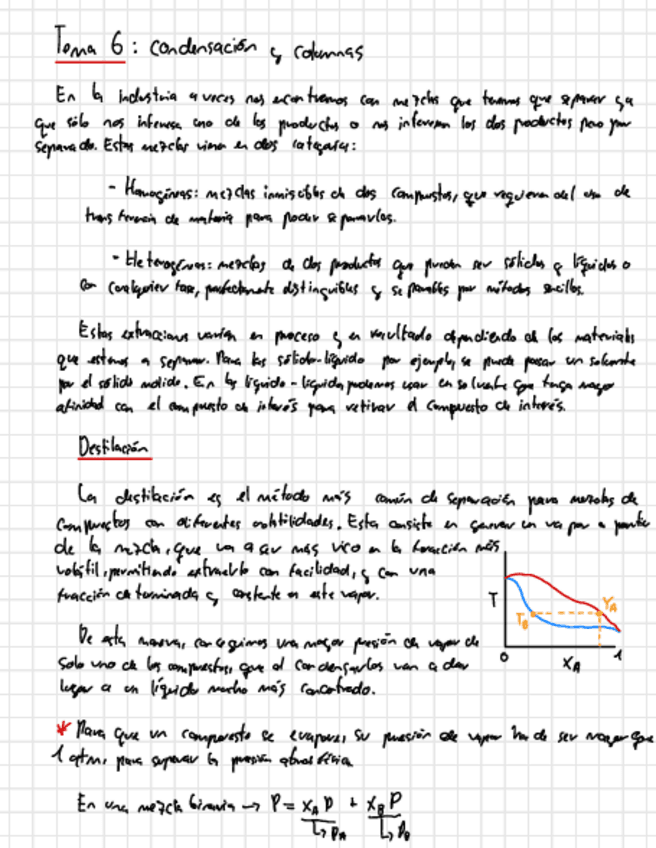 Tema 6: Condensación y columnas
En la industria a veces nos encontramos con mezclas que tenemos que separar ya
que sólo nos interesa uno de los productos o nos interesan los dos productos pero por
separado. Estas mezclas vienen en dos categorías:
- Homogéneas: mezclas inmiscibles de dos compuestos, que requieren del uso de
transferencia de materia para poder separarlos.
- Heterogéneas: mezclas de dos productos que pueden ser sólidos y líquidos o
en cualquier fase, perfectamente distinguibles y separables por métodos sencillos.
Estas extracciones varían en proceso y en resultado dependiendo de los materiales
que estemos a separar. Para las sólido-líquido por ejemplo, se puede pasar un solvente
por el sólido molido. En las líquido-líquido podemos usar un solvente que tenga mayor
afinidad con el compuesto de interés para retirar el compuesto de interés.
Destilación
La destilación es el método más común de separación para mezclas de
compuestos con diferentes volatilidades. Esta consiste en generar un vapor a partir
de la mezcla, que va a ser más rico en la fracción más
volátil, permitiendo extraerlo con facilidad, y con una
fracción determinada y constante en este vapor.
T
T_B
Y_A
0
X_A
1
De esta manera, conseguimos una mayor presión de vapor de
solo uno de los compuestos, que al condensarlos van a dar
lugar a un líquido mucho más concentrado.
* Para que un compuesto se evapore, su presión de vapor ha de ser mayor que
1 atm, para superar la presión atmosférica
En una mezcla binaria → P = X_A P + X_B P
↳ P_A ↳ P_B